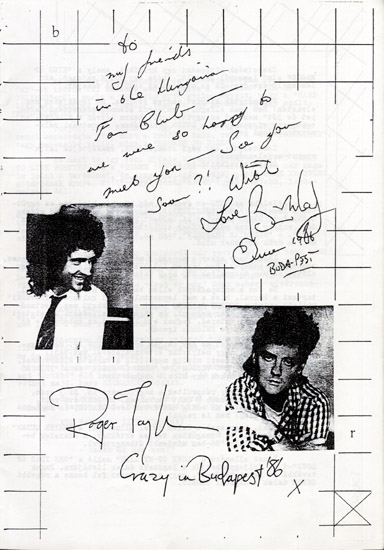 b
to
my friends
in the Hungaria
Fan Club —
we were so happy to
meet you — See you
soon?! With
Love Bri May
Queen 1986
BUDA-PEST
Roger Taylor
r
Crazy in Budapest '86
X